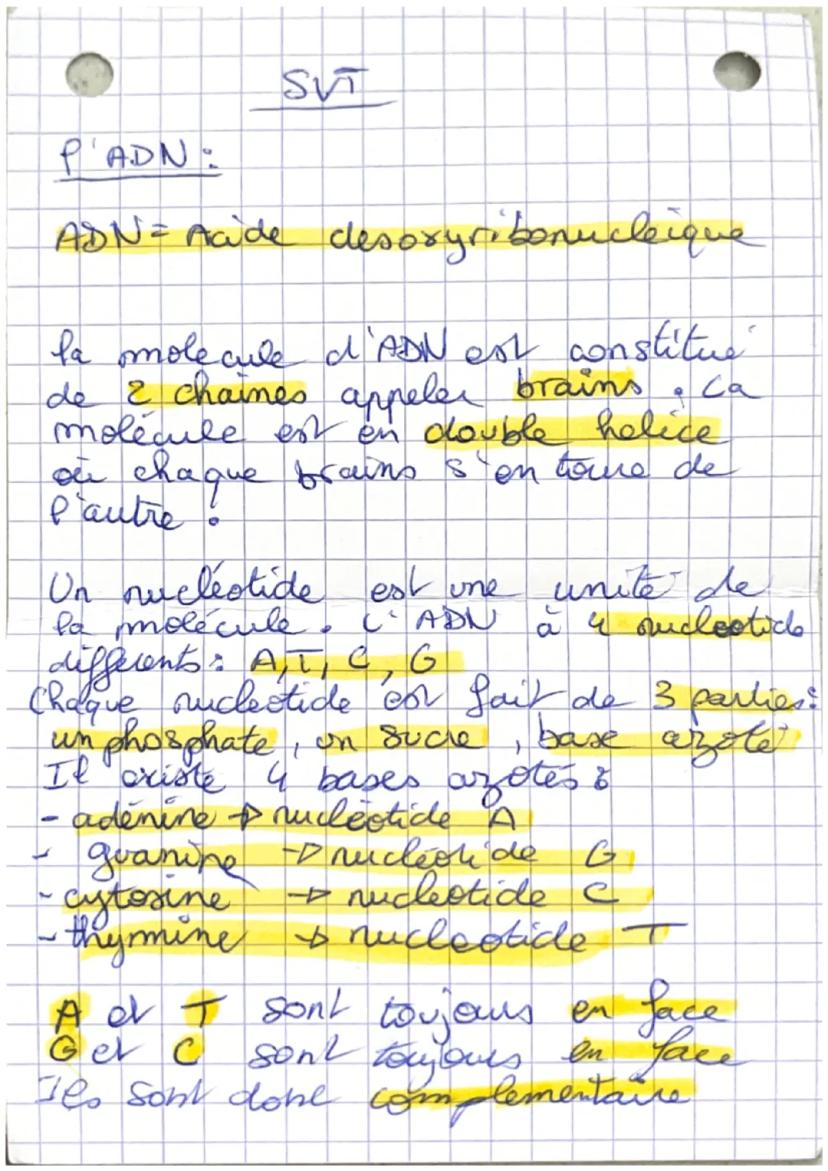 SVT
l'ADN :
ADN = Acide desoxyribonucléique
la molécule d'ADN est constitué
de 2 chaînes appeler brains. La
molécule est en double helice
où chaque brains s'entoure de
l'autre.
Un nucléotide est une unité de
la molécule. L'ADN à 4 nucleotide
différents : A, T, C, G
Chaque nucleotide est fait de 3 parties :
un phosphate, un sucre, base azoté
Il existe 4 bases azotés :
- adénine → nucléotide A
- guanine → nucléotide G
- cytosine → nucleotide C
- thymine → nucleotide T
A et T sont toujours en face
G et C sont toujours en face
Ils sont donc complementaire